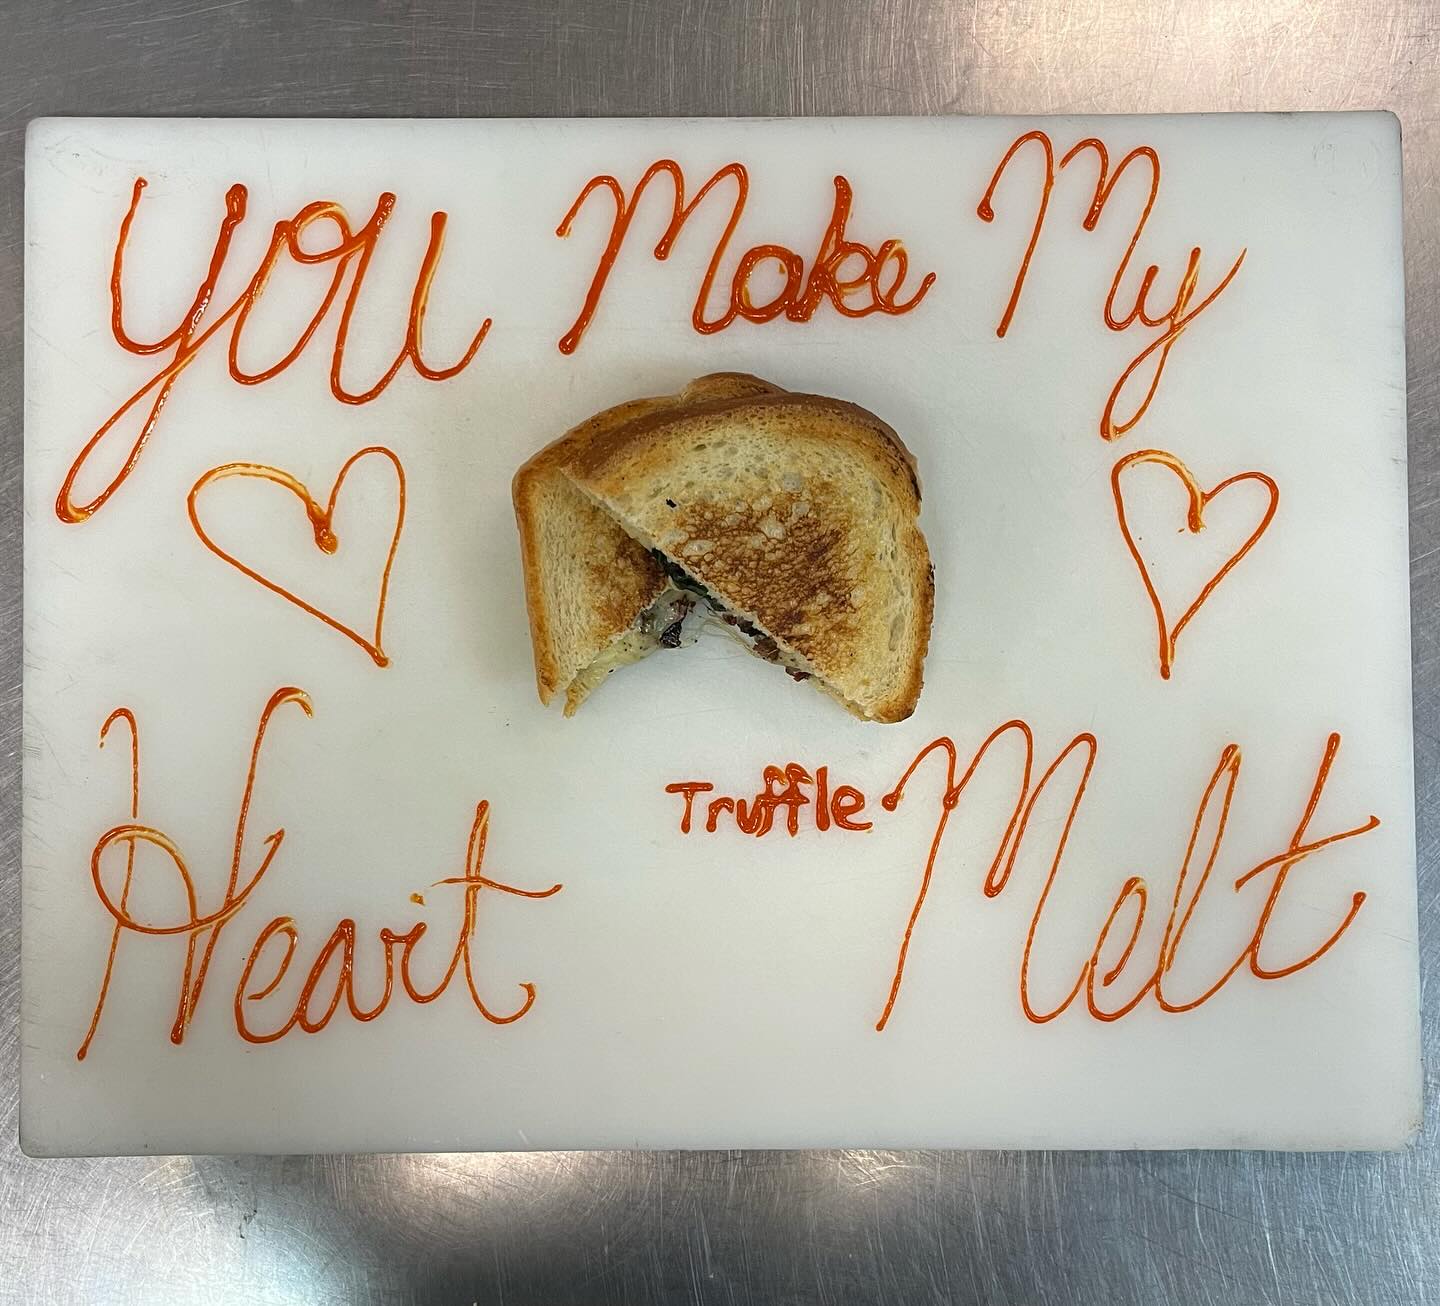 You Make My
Heart Truffle Melt